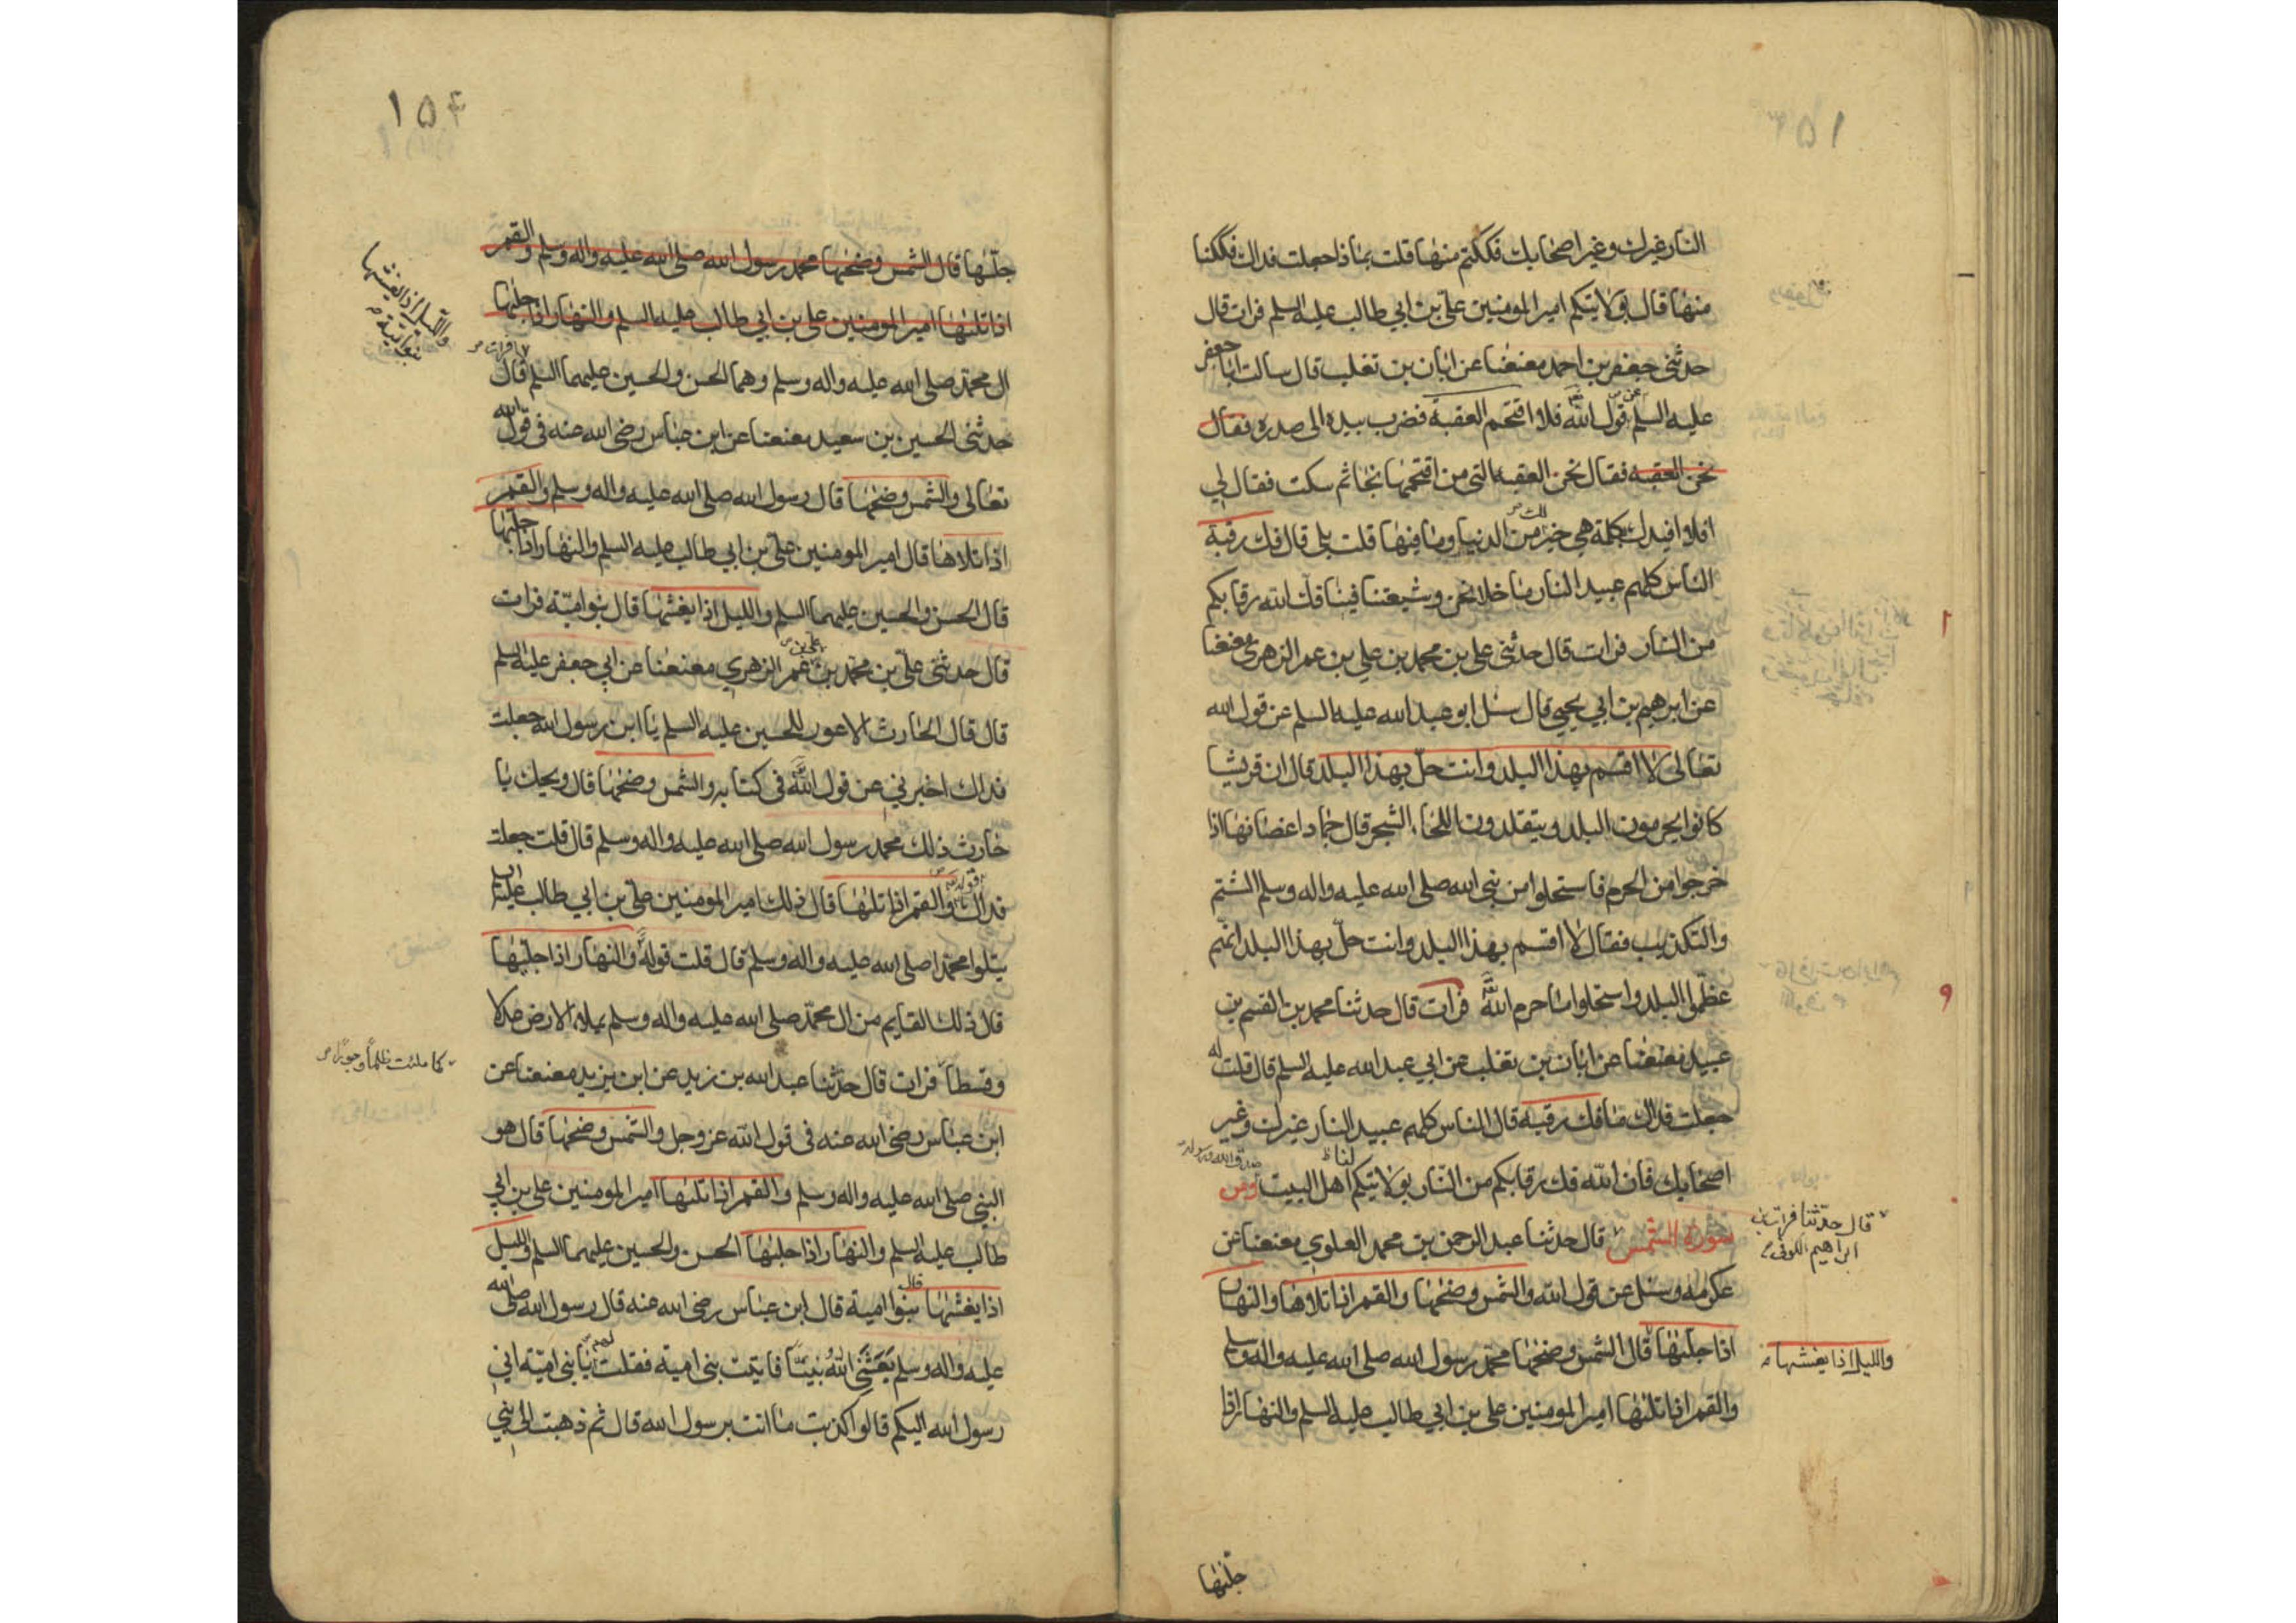 النار غيرك وغير اصحابك فككتم منها قلت بماذا جعلت فداك فككنا
منها قال بولايتكم امير المومنين علي بن ابي طالب عليه السلم فرات قال
حدثني جعفر بن احمد معنعنا عن ابان بن تغلب قال سالت ابا جعفر
عليه السلم عن قول الله فلا اقتحم العقبة فضرب بيده الى صدره فقال
نحن العقبه فقال نحن العقبه التى من اقتحمها نجا ثم سكت فقال لي
افلا افيدك كلمة هي خير لك من الدنيا وما فيها قلت بلى قال فك رقبة
الناس كلهم عبيد النار ما خلا نحن وشيعتنا فينا فك الله رقابكم
من النار فرات قال حدثني علي بن محمد بن علي بن عمر الزهري معنعنا
عن ابرهيم بن ابي يحيي قال سئل ابو عبد الله عليه السلم عن قول الله
تعالى لا اقسم بهذا البلد وانت حل بهذا البلد قال ان قريشا
كانوا يحرمون البلد ويتقلدون اللحاء الشجر قال حماد اغصانها اذا
خرجوا من الحرم فاستحلوا من نبي الله صلى الله عليه واله وسلم الشتم
والتكذيب فقال لا اقسم بهذا البلد وانت حل بهذا البلد انهم
عظموا البلد واستحلوا ما حرم الله فرات قال حدثنا محمد بن القسم بن
عبيد معنعنا عن ابان بن تغلب عن ابي عبد الله عليه السلم قال قلت له
جعلت فداك ما فك رقبة قال الناس كلهم عبيد النار غيرك وغير
اصحابك فان الله فك رقابكم من النار بولايتكم لنا اهل البيت ومن
صدق الله ورسوله
سورة الشمس قال حدثنا عبد الرحمن بن محمد العلوي معنعنا عن
قال حدثنا فرات بن
ابراهيم الكوفي
عكرمه وسئل عن قول الله والشمس وضحها والقمر اذا تلاها والنهار
اذا جلها قال الشمس وضحها محمد رسول الله صلى الله عليه واله وسلم
والليل اذا يغشها
والقمر اذا تلها امير المومنين علي بن ابي طالب عليه السلم والنهار اذا
جلها
١٥٤
جلها قال الشمس وضحها محمد رسول الله صلى الله عليه واله وسلم والقمر
اذا تلها امير المومنين علي بن ابي طالب عليه السلم والنهار اذا جلها
والليل اذا يغشها
بنو امية
ال محمد صلى الله عليه واله وسلم وهما الحسن والحسين عليهما السلم فرات قال
حدثني الحسين بن سعيد معنعنا عن ابن عباس رضى الله عنه فى قول الله
تعالى والشمس وضحها قال رسول الله صلى الله عليه واله وسلم والقمر
اذا تلاها قال امير المومنين علي بن ابي طالب عليه السلم والنهار اذا جلها
قال الحسن والحسين عليهما السلم والليل اذا يغشها قال بنو امية فرات
قال حدثني علي بن محمد بن علي بن عمر الزهري معنعنا عن ابي جعفر عليه السلم
قال قال الحارث الاعور للحسين عليه السلم يا ابن رسول الله جعلت
فداك اخبرني عن قول الله فى كتابه والشمس وضحها قال ويحك يا
حارث ذلك محمد رسول الله صلى الله عليه واله وسلم قال قلت جعلت
فداك قوله والقمر اذا تلها قال ذلك امير المومنين علي بن ابي طالب عليه السلم
يتلوا محمدا صلى الله عليه واله وسلم قال قلت قوله والنهار اذا جلها
قال ذلك القايم من ال محمد صلى الله عليه واله وسلم يملاء الارض عدلا
كما ملئت ظلما وجورا
وقسطا فرات قال حدثنا عبد الله بن زيد عن ابن يزيد معنعنا عن
ابن عباس رضى الله عنه فى قول الله عز وجل والشمس وضحها قال هو
النبي صلى الله عليه واله وسلم والقمر اذا تلها امير المومنين علي بن ابي
طالب عليه السلم والنهار اذا جلها الحسن والحسين عليهما السلم والليل
اذا يغشها قال بنوا امية قال ابن عباس رضى الله عنه قال رسول الله صلى الله
عليه واله وسلم بعثني الله نبيا فاتيت بني امية فقلت لهم يا بني امية اني
رسول الله اليكم قالوا كذبت ما انت برسول الله قال ثم ذهبت الى بني